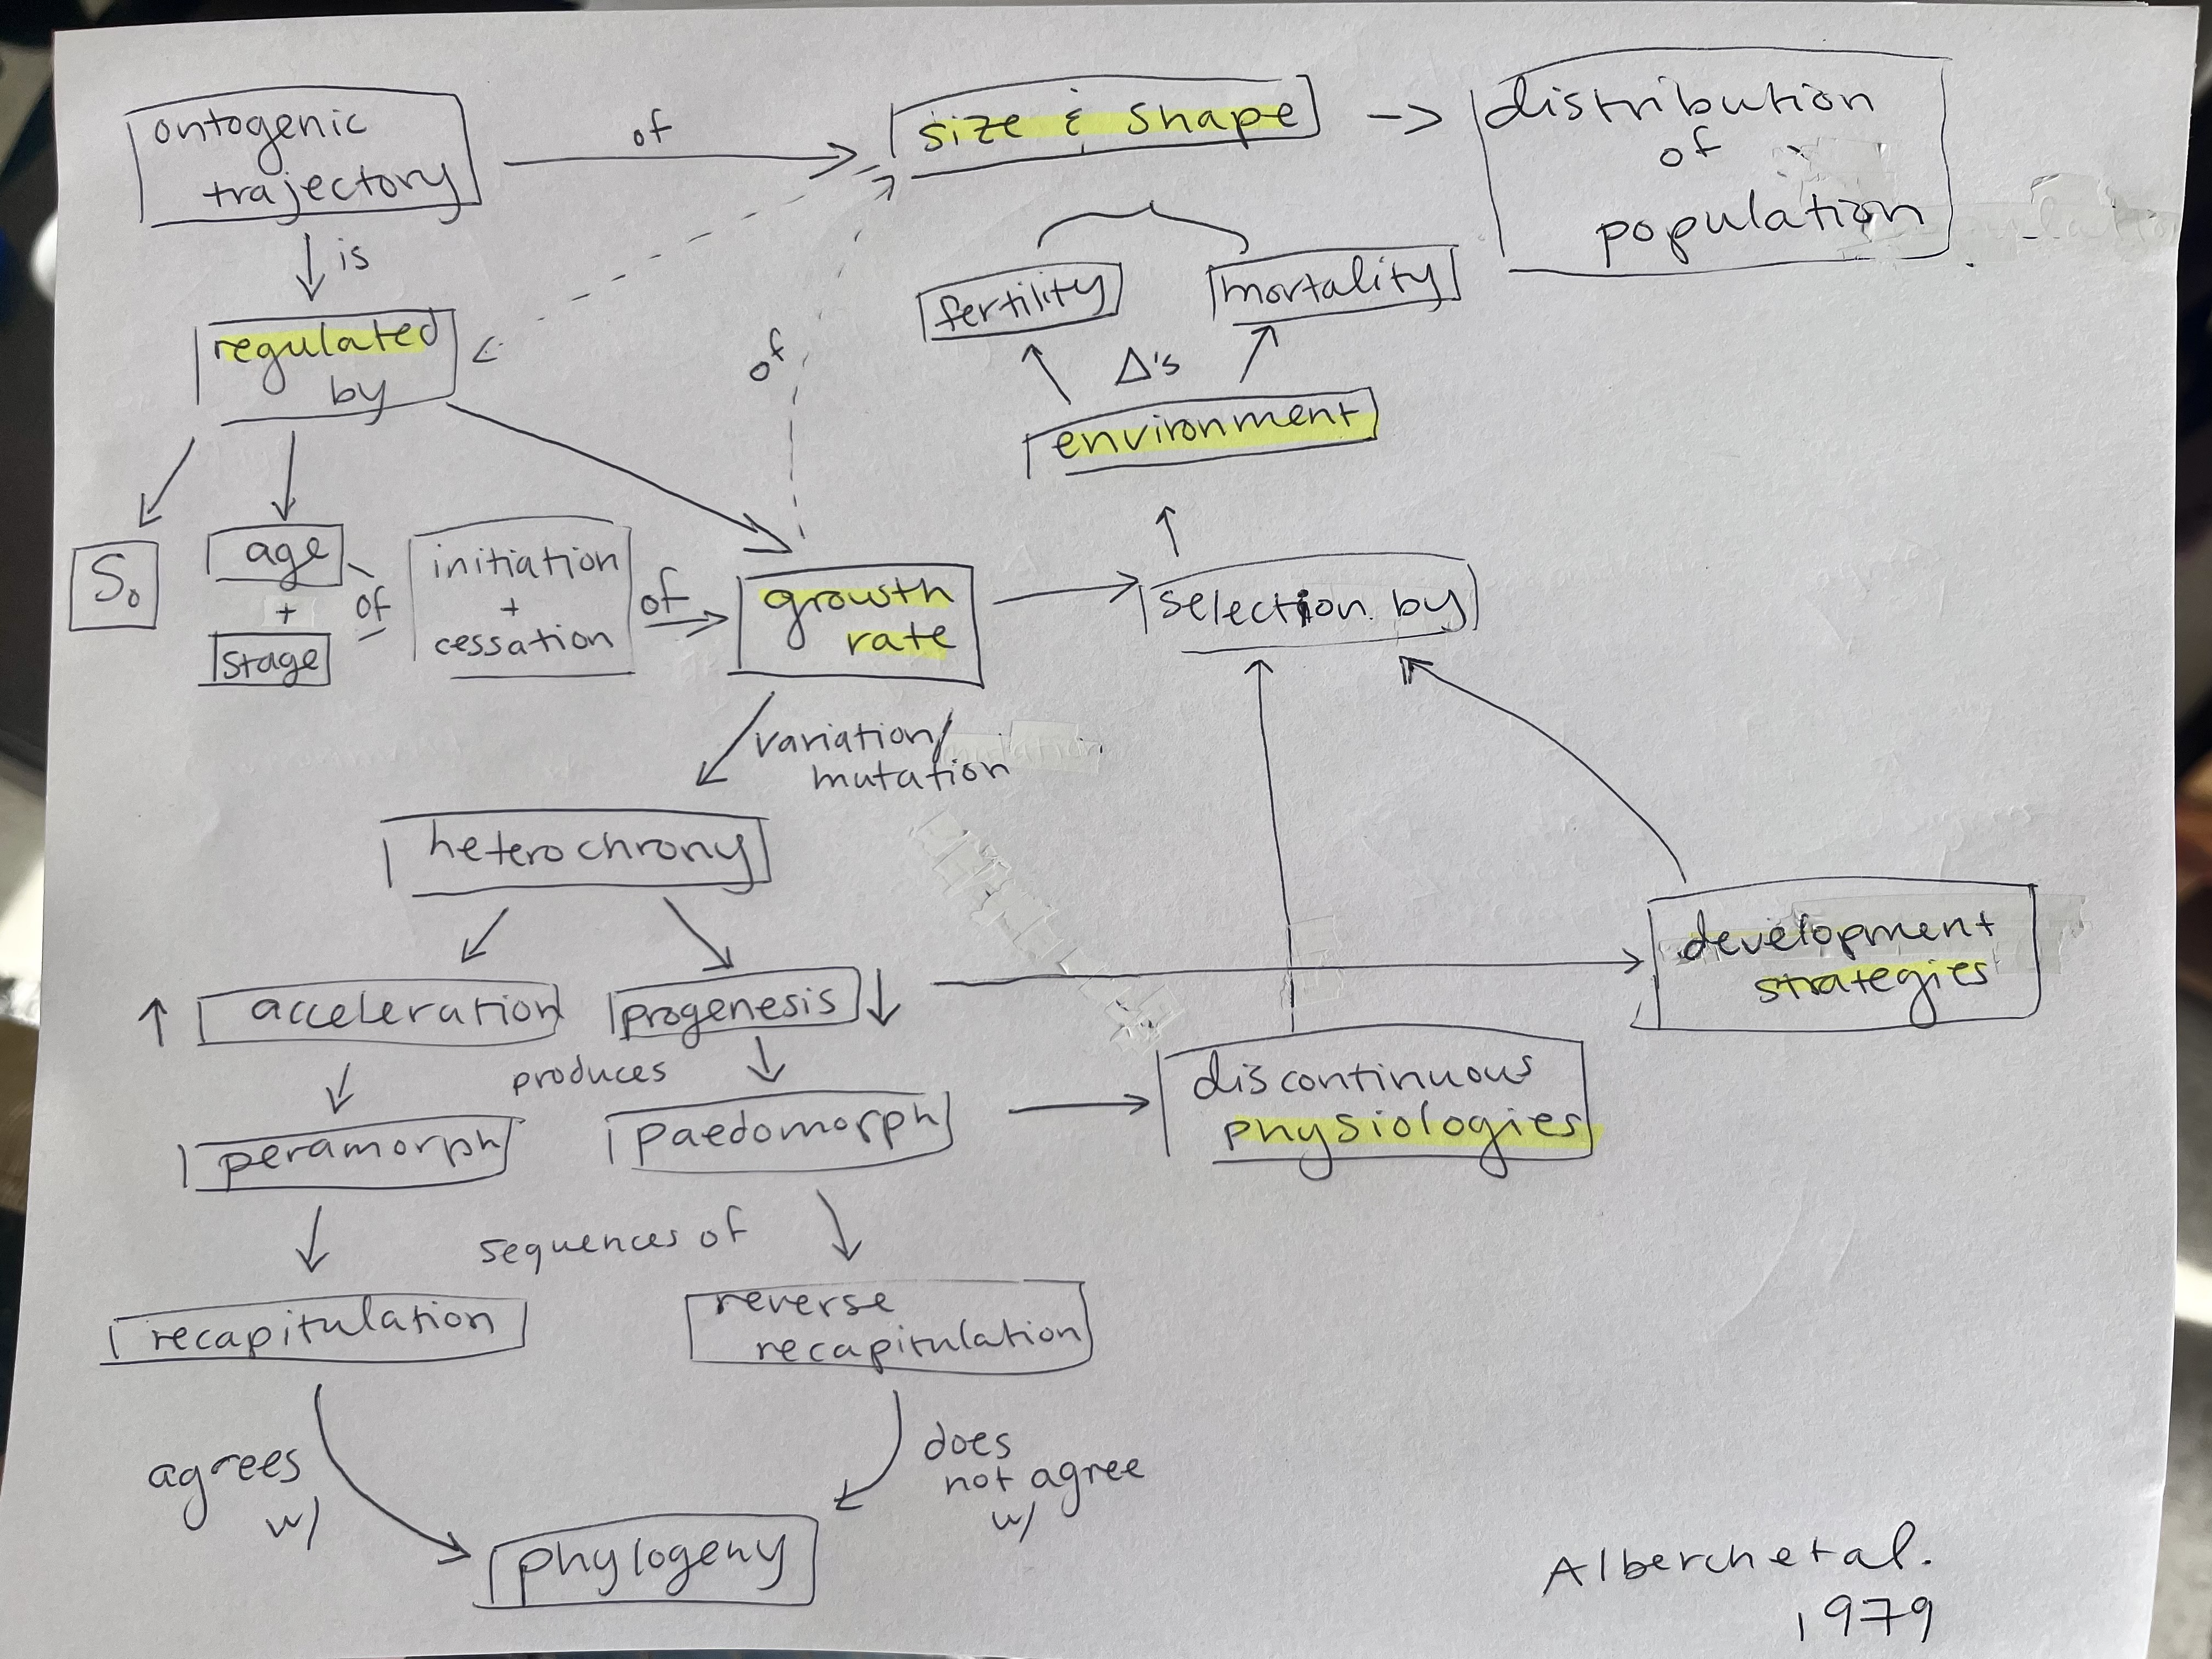 ontogenic
trajectory
of
size & shape
distribution
of
population
is
regulated
by
of
fertility
mortality
Δ's
environment
S₀
age
+
stage
of
initiation
+
cessation
of
growth
rate
selection by
variation/
mutation
heterochrony
acceleration
progenesis
development
strategies
produces
peramorph
paedomorph
discontinuous
physiologies
sequences of
recapitulation
reverse
recapitulation
agrees
w/
does
not agree
w/
phylogeny
Alberch et al.
1979